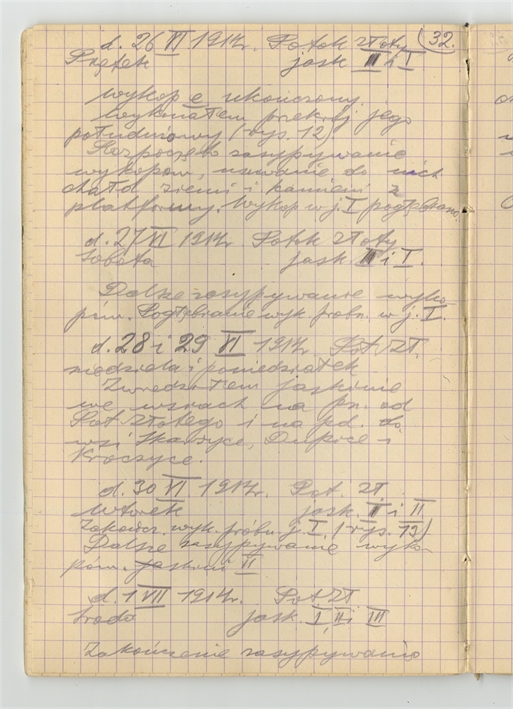 32.
d. 26 VI 1914r. Potok złoty
Piątek jask. II i I
Wykop e ukończony.
Wykonałem przekrój jego
południowy (rys. 12)
Rozpoczęto zasypywanie
wykopów, usuwanie do nich
ziemi i kamieni z
platformy. Wykop w j. I pogłębiano.
d. 27 VI 1914r. Potok Złoty
Sobota jask. II i I.
Dalsze zasypywanie wyko-
pów. Pogłębianie wyk. próbn. w j. I.
d. 28 i 29 VI 1914r. Pot. Zł.
niedziela i poniedziałek
Zwiedzałem jaskinie
we wsiach na pn. od
Pot. Złotego i na pd. do
wsi Skarżyce, i
Kroczyce.
d. 30 VI 1914r. Pot. Zł.
Wtorek jask. I i II
Zakończ. wyk. próbn. j. I. (rys. 13)
Dalsze zasypywanie wyko-
pów. Jaskini II
d. 1 VII 1914r. Pot. Zł
Środa jask. I, II i III
Zakończenie zasypywania